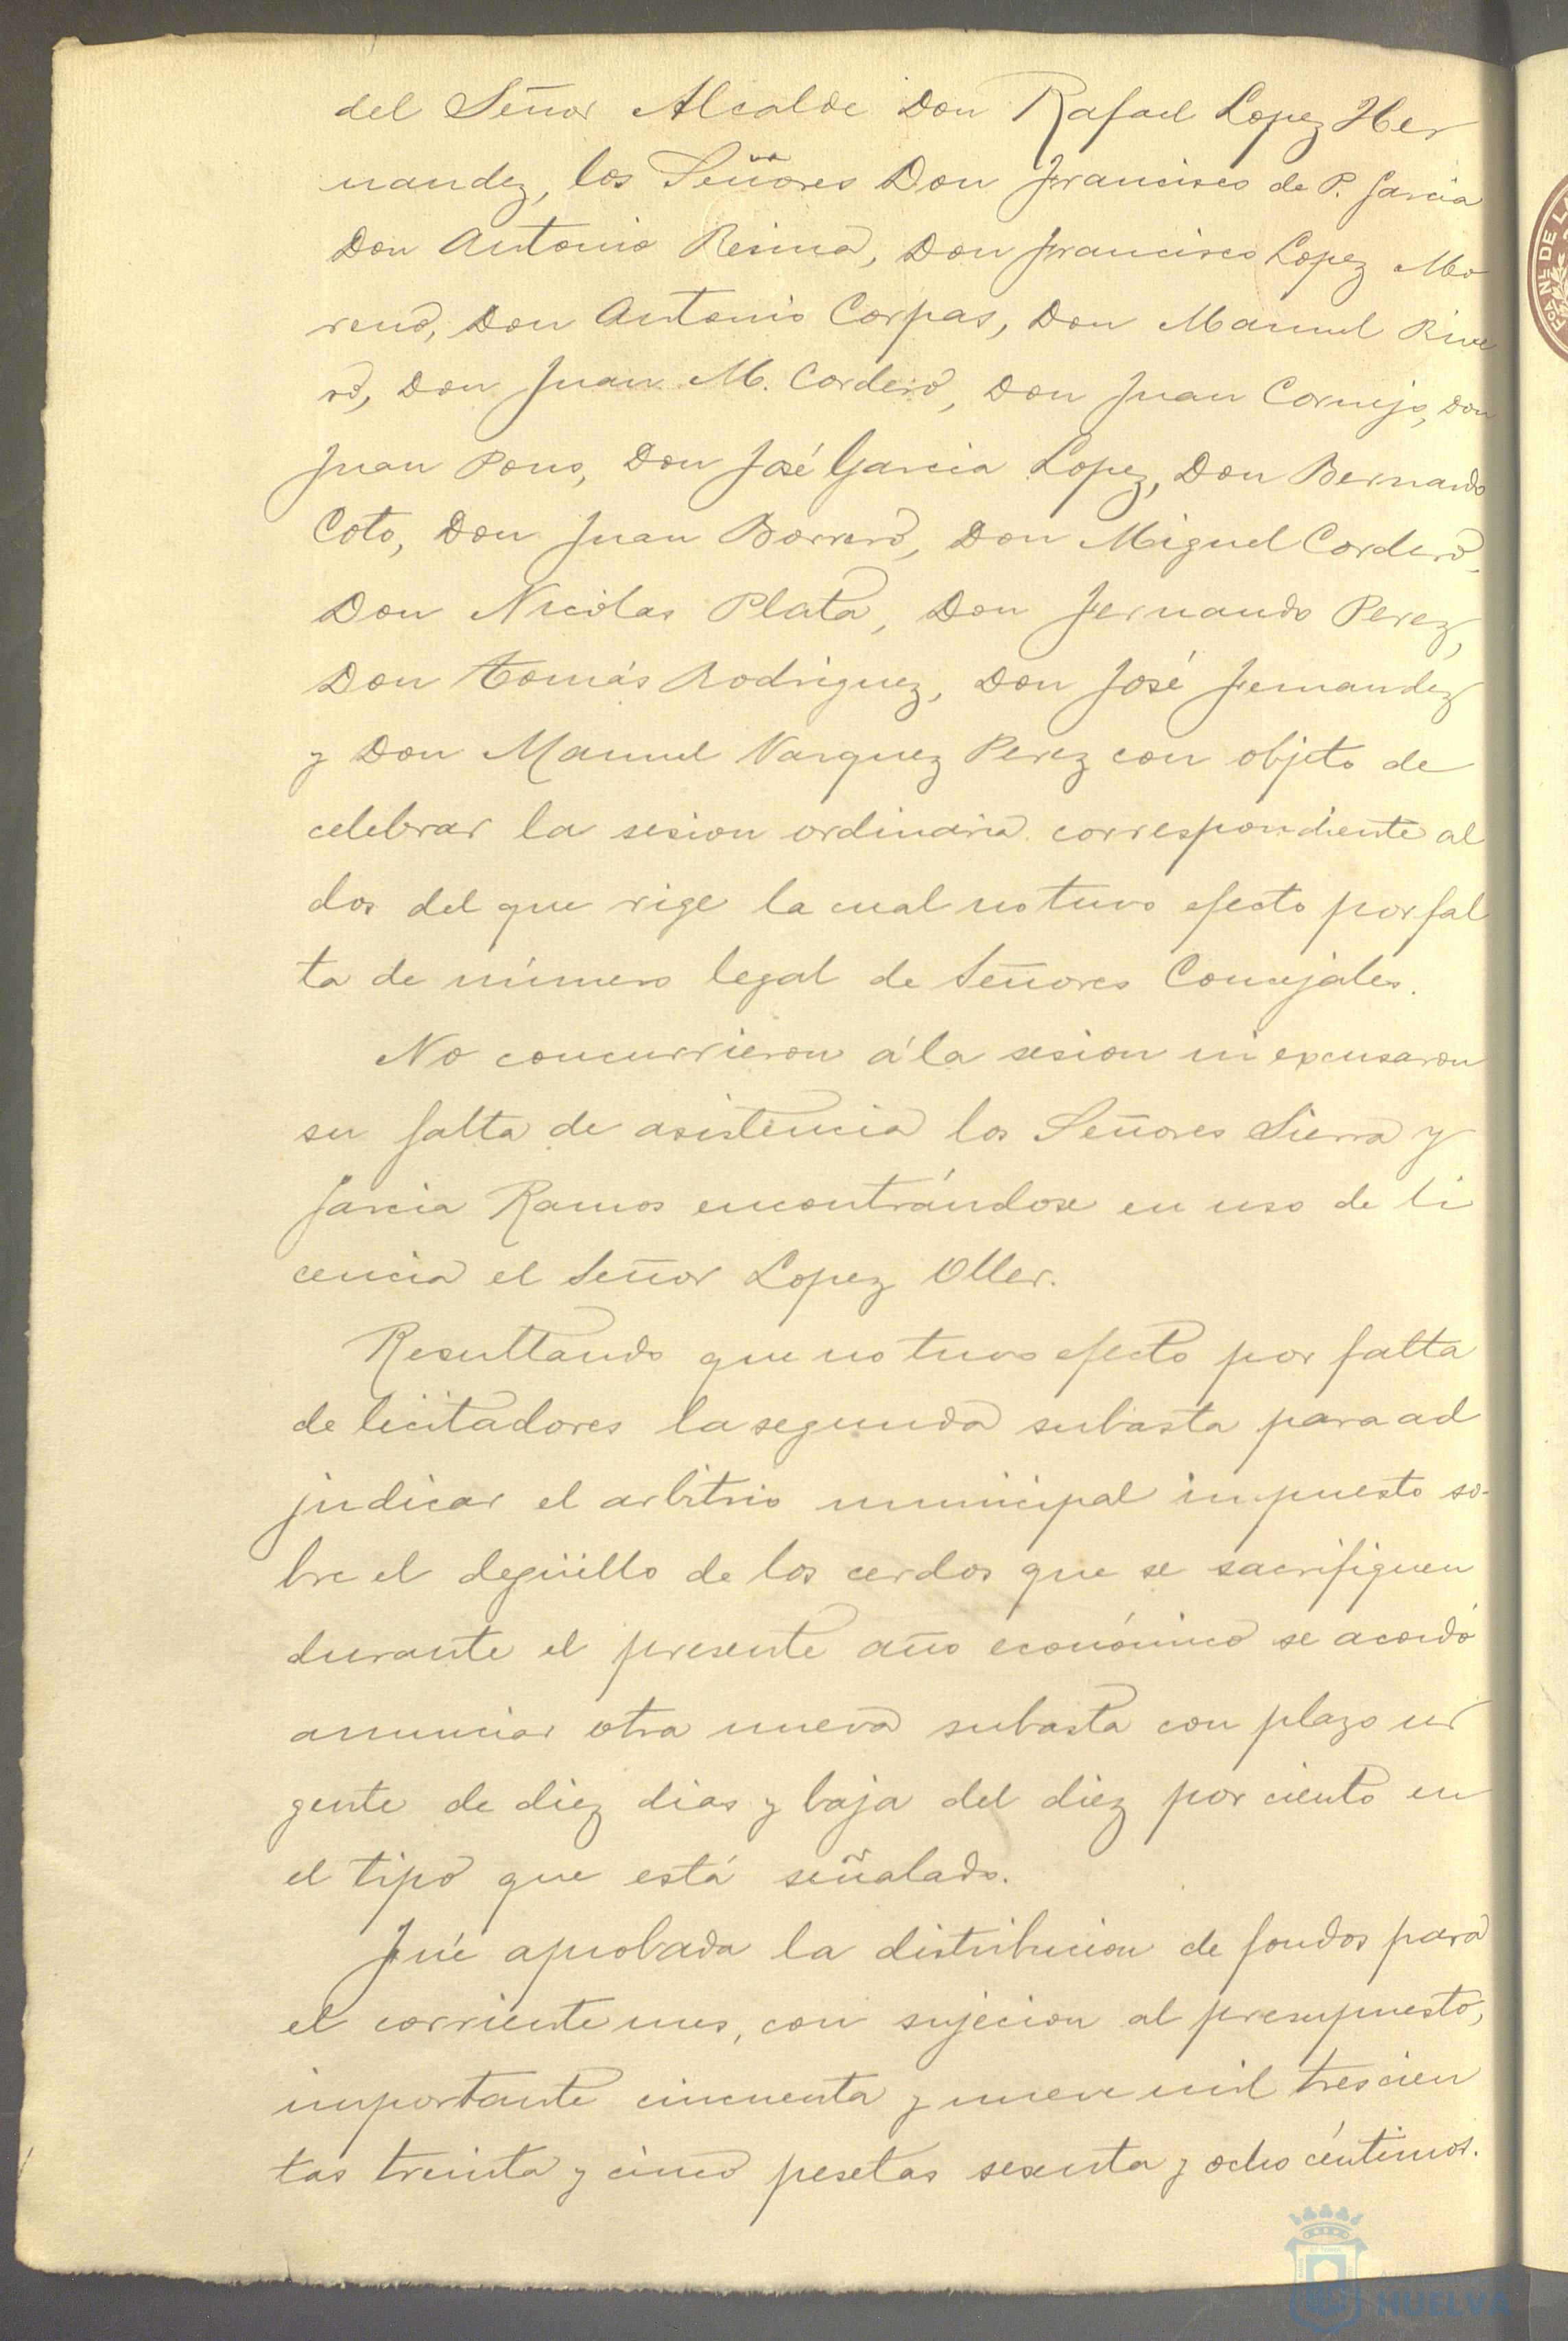 del Señor Alcalde Don Rafael Lopez Her
nandez, los Señores Don Francisco de P. Garcia
Don Antonio Resina, Don Francisco Lopez Mo
reno, Don Antonio Corpas, Don Manuel Rive
ro, Don Juan M. Cordero, Don Juan Cornejo, Don
Juan Pons, Don José Garcia Lopez, Don Bernardo
Coto, Don Juan Borrero, Don Miguel Cordero,
Don Nicolas Plata, Don Fernando Perez,
Don Tomás Rodriguez, Don José Fernandez
y Don Manuel Vazquez Perez con objeto de
celebrar la sesion ordinaria correspondiente al
dos del que rige la cual no tuvo efecto por fal
ta de número legal de Señores Concejales.
No concurrieron á la sesion ni excusaron
su falta de asistencia los Señores Sierra y
Garcia Ramos encontrándose en uso de li
cencia el Señor Lopez Oller.
Resultando que no tuvo efecto por falta
de licitadores la segunda subasta para ad
judicar el arbitrio municipal impuesto so-
bre el degüello de los cerdos que se sacrifiquen
durante el presente año económico se acordó
anunciar otra nueva subasta con plazo ur
gente de diez dias y baja del diez por ciento en
el tipo que está señalado.
Fué aprobada la distribucion de fondos para
el corriente mes, con sujecion al presupuesto,
importante cincuenta y nueve mil trescien
tas treinta y cinco pesetas sesenta y ocho céntimos.
HUELVA